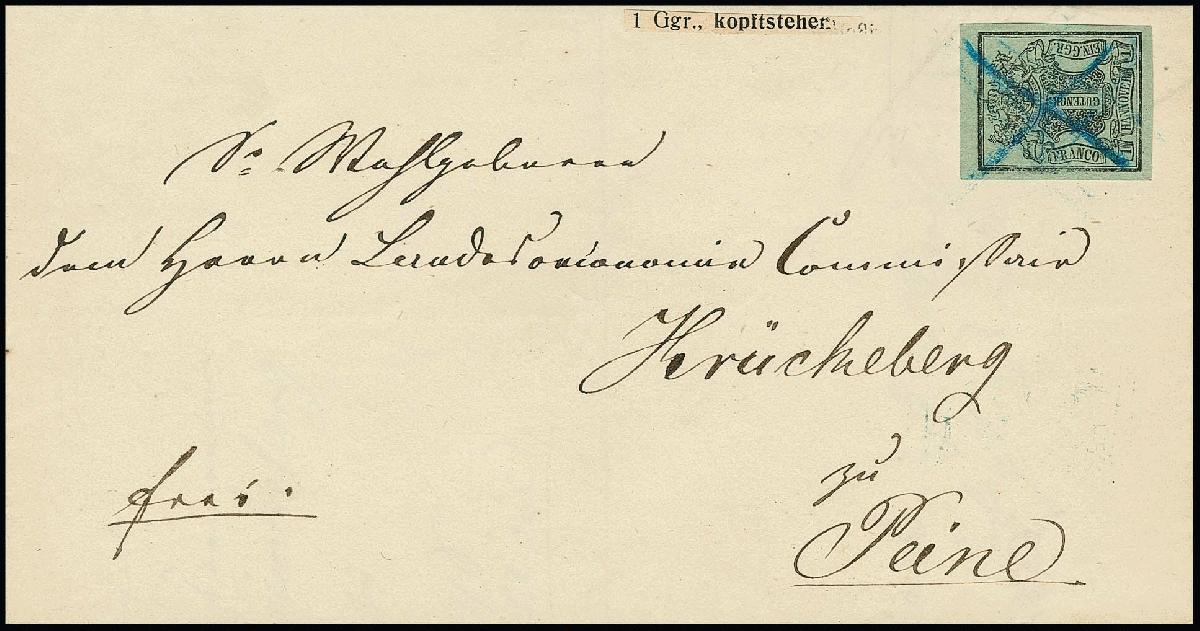 1 Ggr., kopfsteher.
EIN.GGR.
GUTENGR
FRANCO
Sr Wohlgeboren
dem Herrn Landesoeconomie Commissair
Krückeberg
frei.
zu
Peine